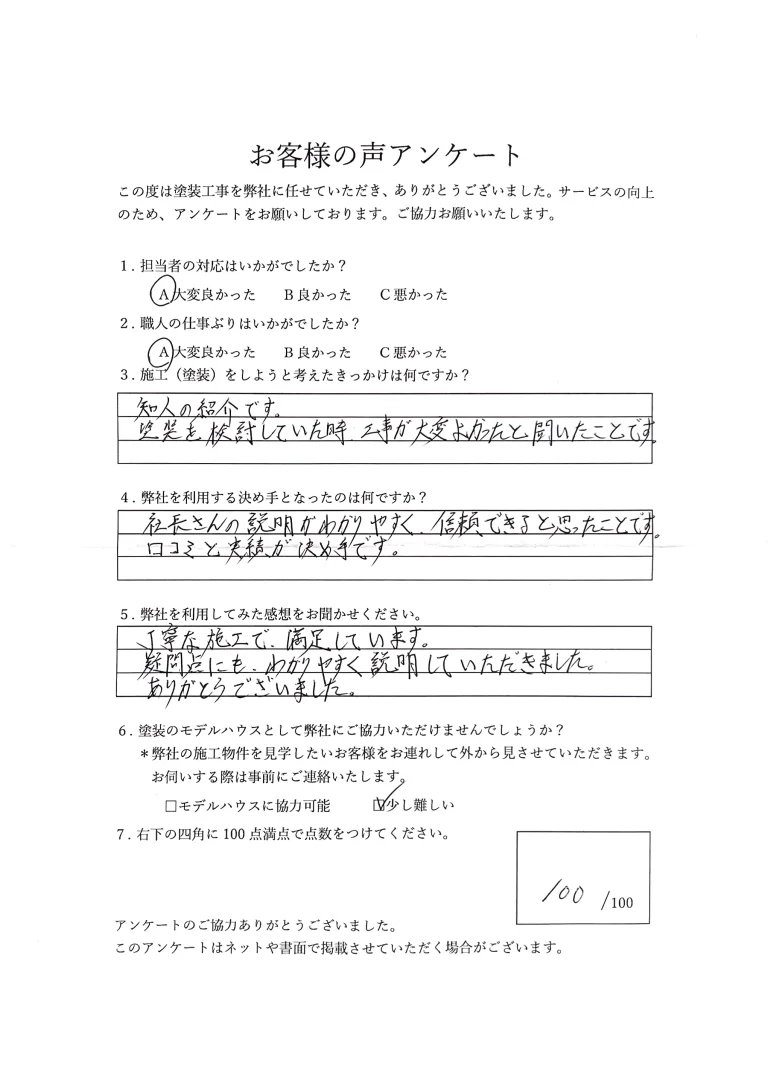 お客様の声アンケート
この度は塗装工事を弊社に任せていただき、ありがとうございました。サービスの向上
のため、アンケートをお願いしております。ご協力お願いいたします。
1.担当者の対応はいかがでしたか？
A大変良かった　B良かった　C悪かった
2.職人の仕事ぶりはいかがでしたか？
A大変良かった　B良かった　C悪かった
3.施工（塗装）をしようと考えたきっかけは何ですか？
知人の紹介です。
塗装を検討していた時、工事が大変よかったと聞いたことです。
4.弊社を利用する決め手となったのは何ですか？
社長さんの説明がわかりやすく、信頼できると思ったことです。
口コミと実績が決め手です。
5.弊社を利用してみた感想をお聞かせください。
丁寧な施工で、満足しています。
疑問点にも、わかりやすく説明していただきました。
ありがとうございました。
6.塗装のモデルハウスとして弊社にご協力いただけませんでしょうか？
＊弊社の施工物件を見学したいお客様をお連れして外から見させていただきます。
お伺いする際は事前にご連絡いたします。
□モデルハウスに協力可能　☑少し難しい
7.右下の四角に100点満点で点数をつけてください。
100 /100
アンケートのご協力ありがとうございました。
このアンケートはネットや書面で掲載させていただく場合がございます。